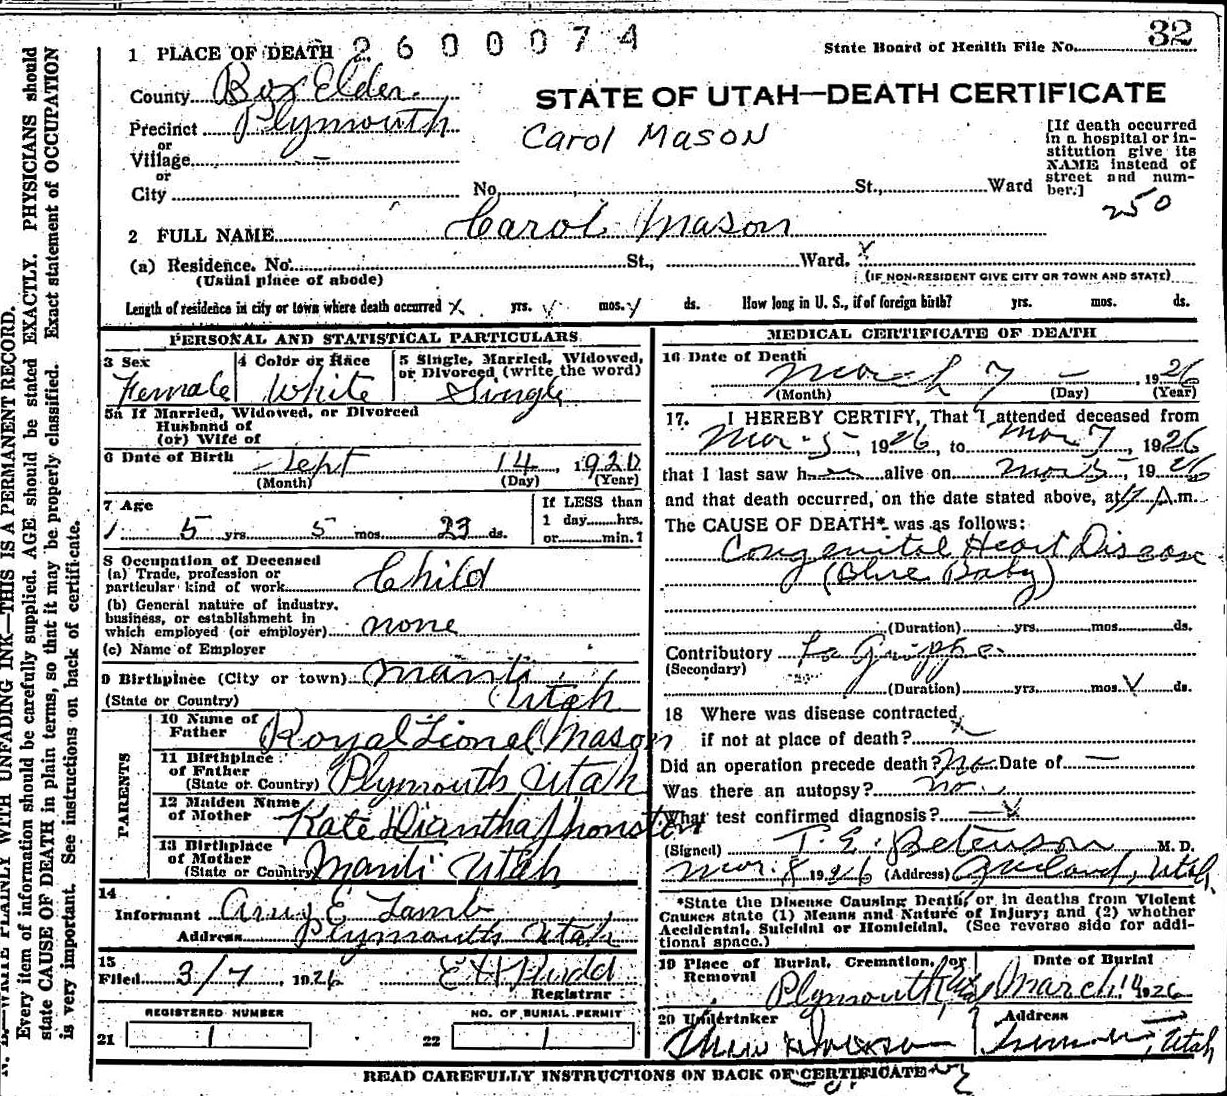 32
1 PLACE OF DEATH 2600074
State Board of Health File No.
County Box Elder
STATE OF UTAH—DEATH CERTIFICATE
Precinct Plymouth
Carol Mason
or
Village –
or
City No. St., Ward
[If death occurred
in a hospital or in-
stitution give its
NAME instead of
street and num-
ber.]
250
2 FULL NAME Carol Mason
(a) Residence. No. St., Ward.
(Usual place of abode)
(IF NON-RESIDENT GIVE CITY OR TOWN AND STATE)
Length of residence in city or town where death occurred yrs. mos. ds. How long in U. S., if of foreign birth? yrs. mos. ds.
PERSONAL AND STATISTICAL PARTICULARS
3 Sex
Female
4 Color or Race
White
5 Single, Married, Widowed,
or Divorced (write the word)
Single
5a If Married, Widowed, or Divorced
Husband of
(or) Wife of
6 Date of Birth Sept 14, 1920
(Month) (Day) (Year)
7 Age
5 yrs. 5 mos. 23 ds.
If LESS than
1 day hrs.
or min.?
8 Occupation of Deceased
(a) Trade, profession or
particular kind of work Child
(b) General nature of industry,
business, or establishment in
which employed (or employer) none
(c) Name of Employer
9 Birthplace (City or town) Manti
(State or Country) Utah
PARENTS
10 Name of
Father Royal Lionel Mason
11 Birthplace
of Father
(State or Country) Plymouth Utah
12 Maiden Name
of Mother Kate Diantha
13 Birthplace
of Mother
(State or Country) Manti Utah
14
Informant Amy E Lamb
Address Plymouth Utah
15
Filed 3/7, 1926 E H Rudd
Registrar
REGISTERED NUMBER
21 1
NO. OF BURIAL PERMIT
22 1
MEDICAL CERTIFICATE OF DEATH
16 Date of Death
March 7 –, 1926
(Month) (Day) (Year)
17. I HEREBY CERTIFY, That I attended deceased from
Mar 5, 1926, to Mar 7, 1926
that I last saw h alive on Mar 5, 1926
and that death occurred, on the date stated above, at A m.
The CAUSE OF DEATH* was as follows:
Congenital Heart Disease
(Blue Baby)
(Duration) yrs. mos. ds.
Contributory La Grippe
(Secondary)
(Duration) yrs. mos. ds.
18 Where was disease contracted
if not at place of death?
Did an operation precede death? No. Date of –
Was there an autopsy? no
What test confirmed diagnosis?
(Signed) T. E. Peterson M. D.
Mar. 8 1926 (Address) Utah
*State the Disease Causing Death, or in deaths from Violent
Causes state (1) Means and Nature of Injury; and (2) whether
Accidental, Suicidal or Homicidal. (See reverse side for addi-
tional space.)
19 Place of Burial, Cremation, or
Removal
Plymouth
Date of Burial
March 1926
20 Undertaker
Address
Utah
READ CAREFULLY INSTRUCTIONS ON BACK OF CERTIFICATE
N. B.—WRITE PLAINLY WITH UNFADING INK—THIS IS A PERMANENT RECORD.
Every item of information should be carefully supplied. AGE should be stated EXACTLY. PHYSICIANS should
state CAUSE OF DEATH in plain terms, so that it may be properly classified. Exact statement of OCCUPATION
is very important. See instructions on back of certificate.